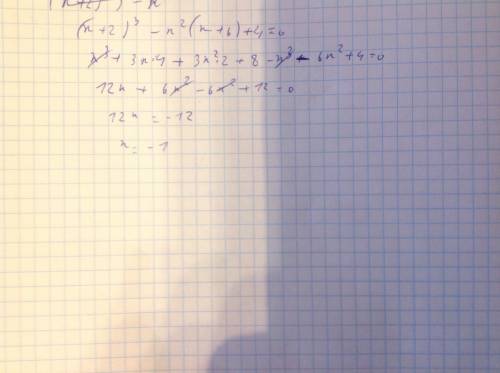 (x+2)³ - x
(x+2)³ - x²(x+6)+4=0
x³ + 3x·4 + 3x²·2 + 8 - x³ - 6x²+4=0
12x + 6x² - 6x² + 12 = 0
12x = -12
x = -1